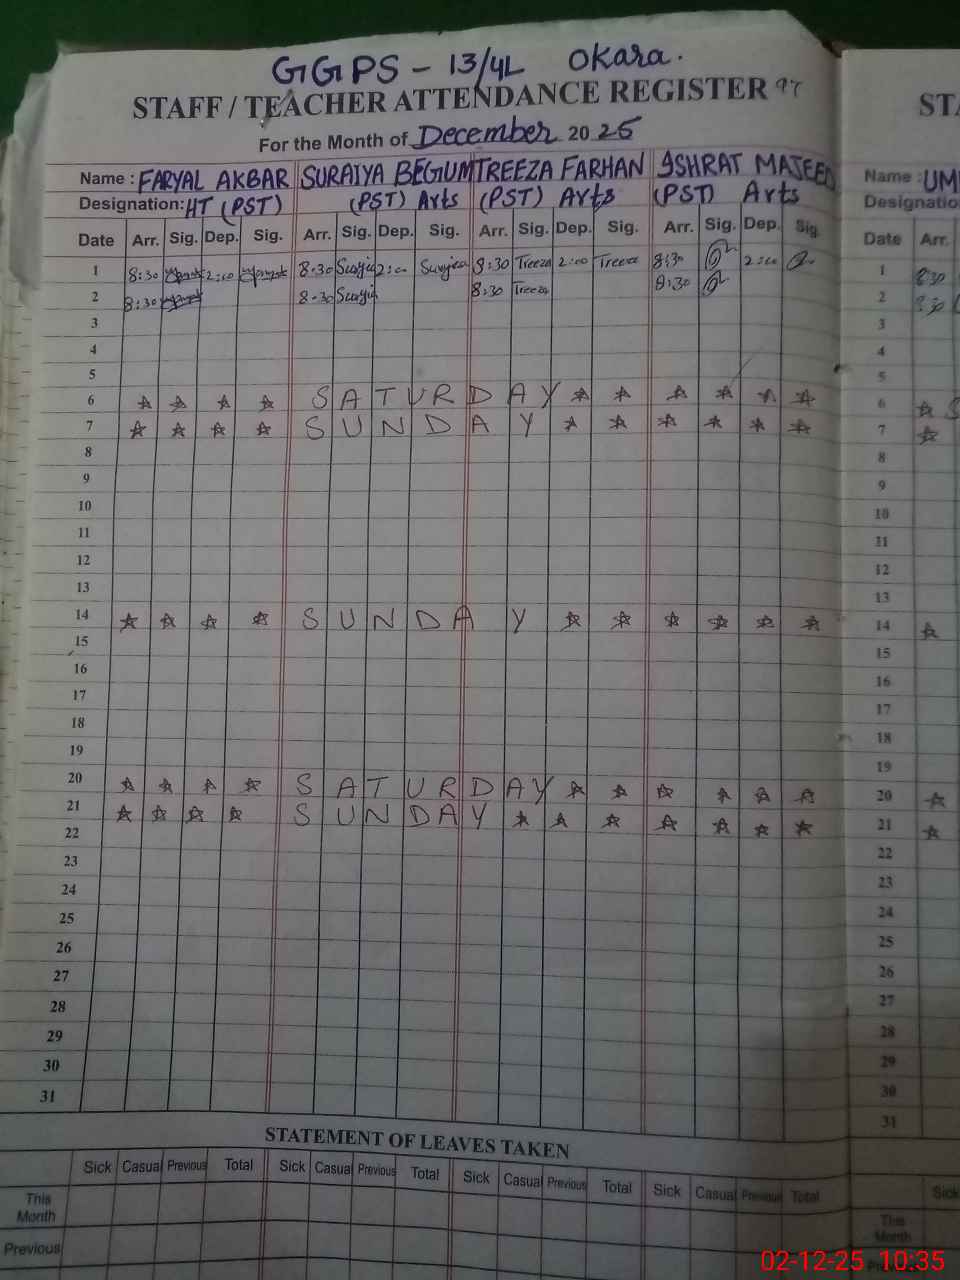 GGPS - 13/4L Okara.
STAFF / TEACHER ATTENDANCE REGISTER 97
For the Month of December 2025
Name : FARYAL AKBAR SURAIYA BEGUM TREEZA FARHAN ISHRAT MAJEED
Designation: HT (PST) (PST) Arts (PST) Arts (PST) Arts
Date Arr. Sig. Dep. Sig. Arr. Sig. Dep. Sig. Arr. Sig. Dep. Sig. Arr. Sig. Dep. Sig.
1 8:30 2:00 8:30 2:00 8:30 Treeza 2:00 Treeza 8:30 2:00
2 8:30 8:30 8:30 Treeza 8:30
3
4
5
6 SATURDAY
7 SUNDAY
8
9
10
11
12
13
14 SUNDAY
15
16
17
18
19
20 SATURDAY
21 SUNDAY
22
23
24
25
26
27
28
29
30
31
STATEMENT OF LEAVES TAKEN
Sick Casual Previous Total Sick Casual Previous Total Sick Casual Previous Total Sick Casual Previous Total
This Month
Previous
ST
Name : UM
Designatio
Date Arr.
1 8:30
2 8:30
3
4
5
6 S
7
8
9
10
11
12
13
14
15
16
17
18
19
20
21
22
23
24
25
26
27
28
29
30
31
Sick
This Month
Previous
02-12-25 10:35